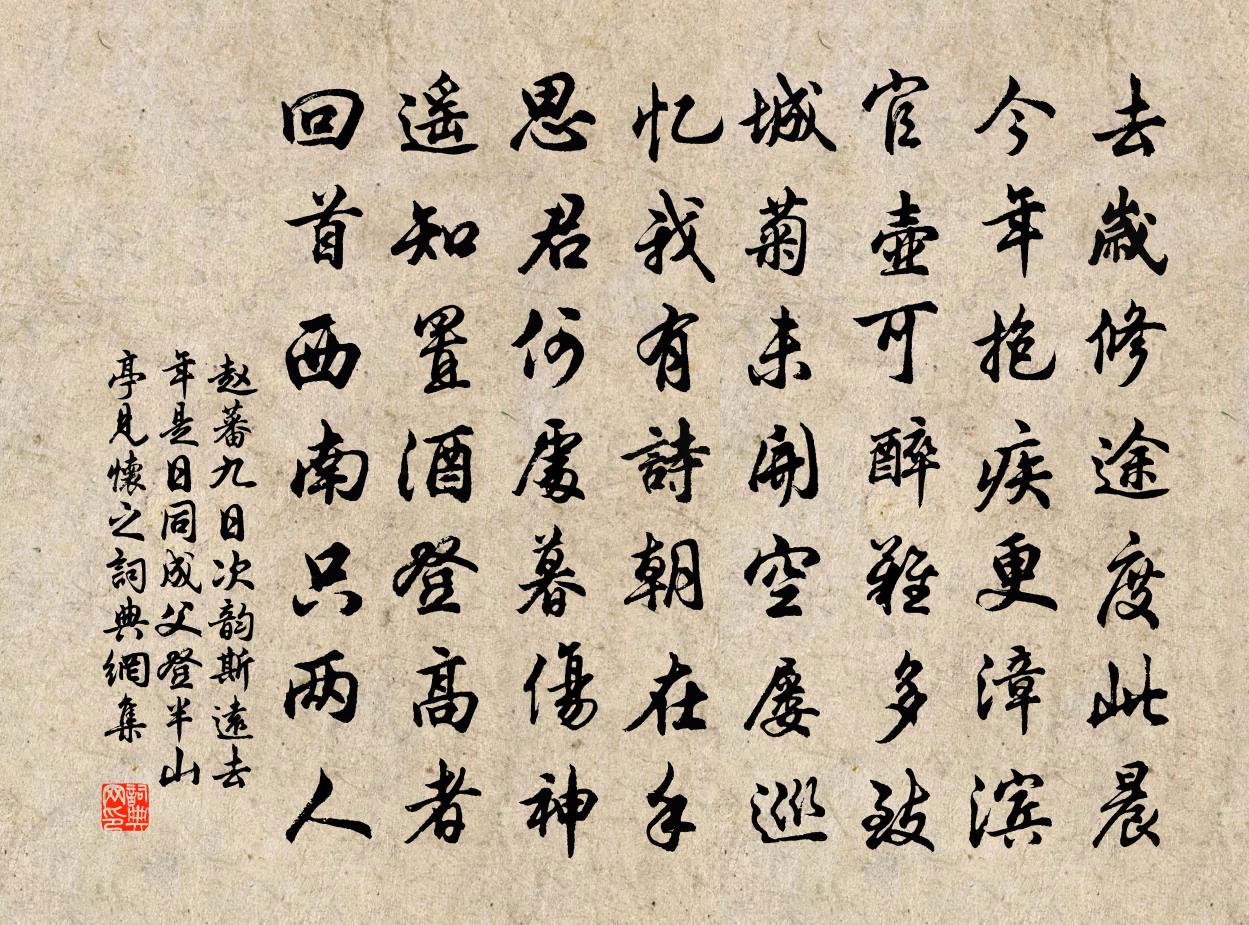 去歲修途度此晨
今年抱疾更漳滨
官壺可醉難多致
城菊未開空屡巡
忆我有詩朝在手
思君何處暮傷神
遥知置酒登高者
回首西南只两人
赵蕃九日次韵斯遠去
年是日同成父登半山
亭見懷之詞典網集
詞典网印